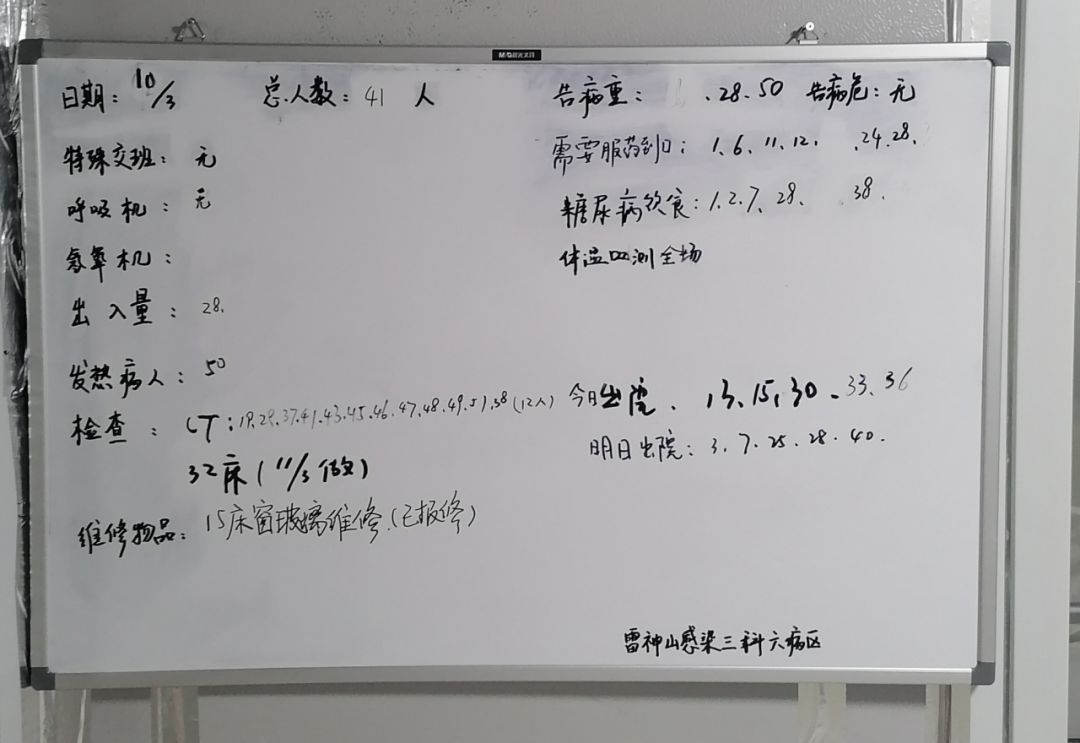 M&G晨光文具
日期：10/3 总人数：41 人
特殊交班：无
呼吸机：无
氢氧机：
出入量：28.
发热病人：50
检查：CT：19.28.37.41.43.45.46.47.48.49.51.38(12人)
32床(11/3做)
维修物品：15床窗玻璃维修.(已报修)
告病重： .28.50 告病危：无
需要服药到口：1.6.11.12. .24.28.
糖尿病饮食：1.2.7.28. 38.
体温四测全场
今日出院、13、15、30、33、36
明日出院：3.7.25.28.40.
雷神山感染三科六病区